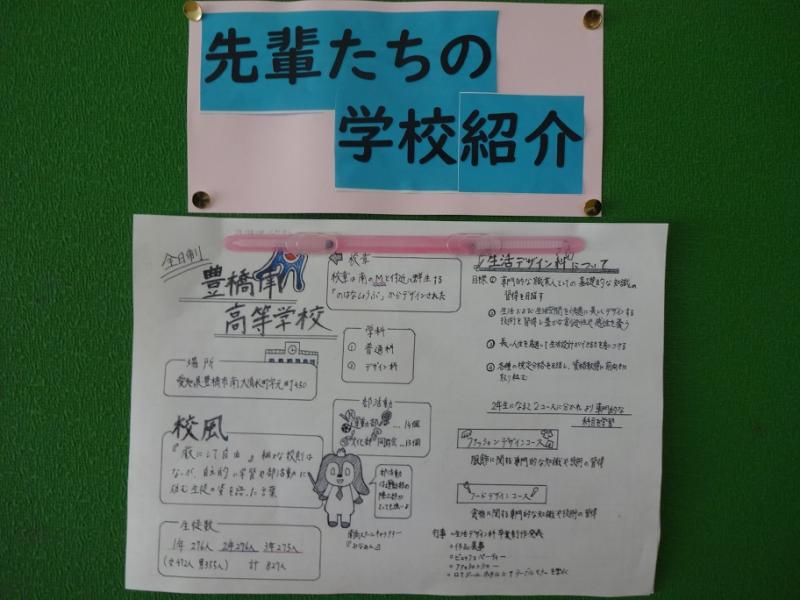 先輩たちの
学校紹介
全日制
豊橋南
高等学校
場所
愛知県豊橋市南大清水町字元町450
校風
『厳にして自由』細かな校則は
ないが、自主的に学習や部活動に
生徒の姿を謳った言葉
生徒数
1年 276人 2年276人 3年275人
(女472人 男355人) 計 827人
校章
校章は南のMと付近に野生する
「のはなしょうぶ」からデザインされた
学科
① 普通科
② デザイン科
部活動
運動部 …14個
文化部 同好会 …13個
部活動
は運動部の
陸上部が
とても強いよ
南高スクールキャラクター
『みなみん』
『生活デザイン科』について
目標 ① 専門的な職業人としての基礎的な知識の
習得を目指す
② 生活および生活空間を快適に美しくデザインする
技術を習得し豊かな創造性や感性を養う
③ 長い人生を見通して生活設計ができる力を身につける
④ 各種の検定合格を目指し、資格取得に前向きに
取り組む
2年生になると2コースに分かれ、より専門的な
科目を学習
ファッションデザインコース
服飾に関する専門的な知識や技術の習得
フードデザインコース
食物に関する専門的な知識や技術の習得
行事 ~生活デザイン科 卒業制作発表
・作品展示
・ビュッフェパーティー
・ファッションショー